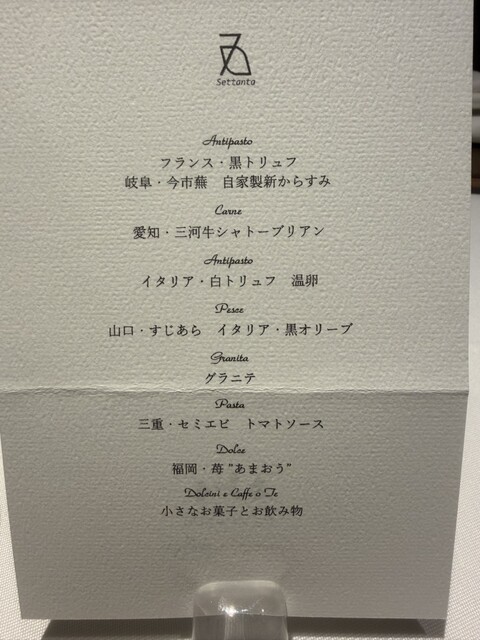 Settanta
Antipasto
フランス・黒トリュフ
岐阜・今市蕪 自家製新からすみ
Carne
愛知・三河牛シャトーブリアン
Antipasto
イタリア・白トリュフ 温卵
Pesce
山口・すじあら イタリア・黒オリーブ
Granita
グラニテ
Pasta
三重・セミエビ トマトソース
Dolce
福岡・苺 ”あまおう”
Dolcini e Caffe o Te
小さなお菓子とお飲み物